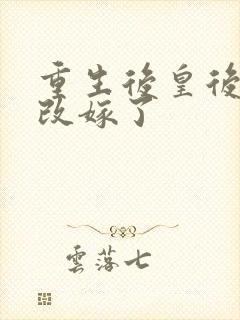 重生後皇後
改嫁了
雲落七